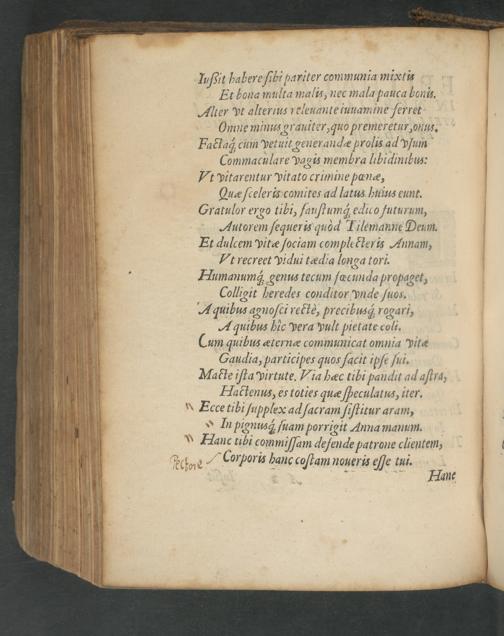 Iußit habere sibi pariter communia mixtis
Et bona multa malis, nec mala pauca bonis.
Alter vt alterius releuante iuuamine ferret
Omne minus grauiter, quo premeretur, onus.
Factaq́; cum vetuit generandæ prolis ad vsum
Commaculare vagis membra libidinibus:
Vt vitarentur vitato crimine pœnæ,
Quæ sceleris comites ad latus huius eunt.
Gratulor ergo tibi, faustumq́; edico futurum,
Autorem sequeris quòd Tilemanne Deum.
Et dulcem vitæ sociam complecteris Annam,
Vt recreet vidui tædia longa tori.
Humanumq́; genus tecum fœcunda propaget,
Colligit heredes conditor vnde suos.
A quibus agnosci rectè, precibusq́; rogari,
A quibus hîc vera vult pietate coli.
Cum quibus æternæ communicat omnia vitæ
Gaudia, participes quos facit ipse sui.
Macte ista virtute. Via hæc tibi pandit ad astra,
Hactenus, es toties quæ speculatus, iter.
Ecce tibi supplex ad sacram sistitur aram,
In pignusq́; suam porrigit Anna manum.
Hanc tibi commissam defende patrone clientem,
Pectore
Corporis hanc costam noueris esse tui.
Hanc